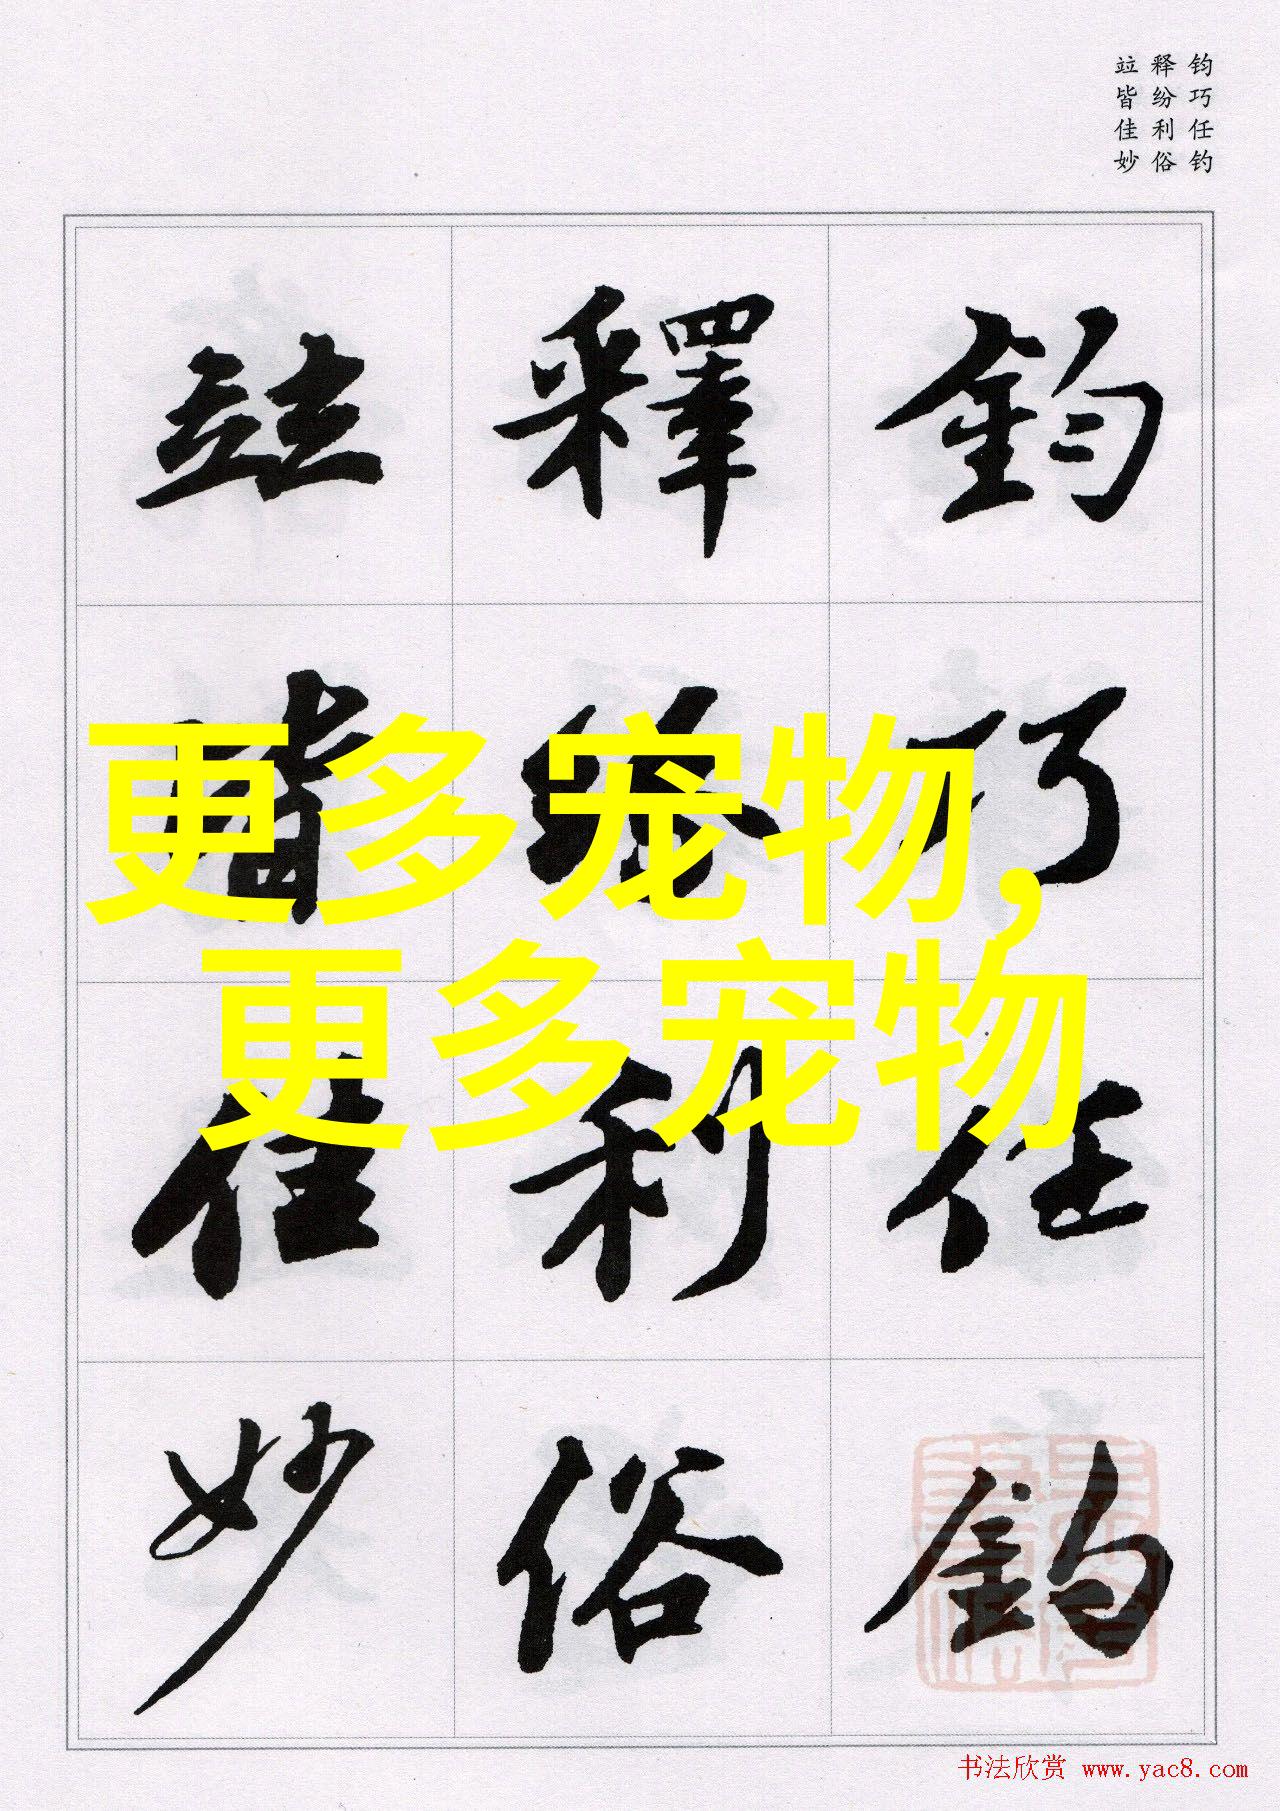 钧巧任钓
释纷利俗
竝皆佳妙
鈞巧任釣
釋紛利俗
竝皆佳妙
更多宠物,
更多宠物
书法欣赏 www.yac8.com